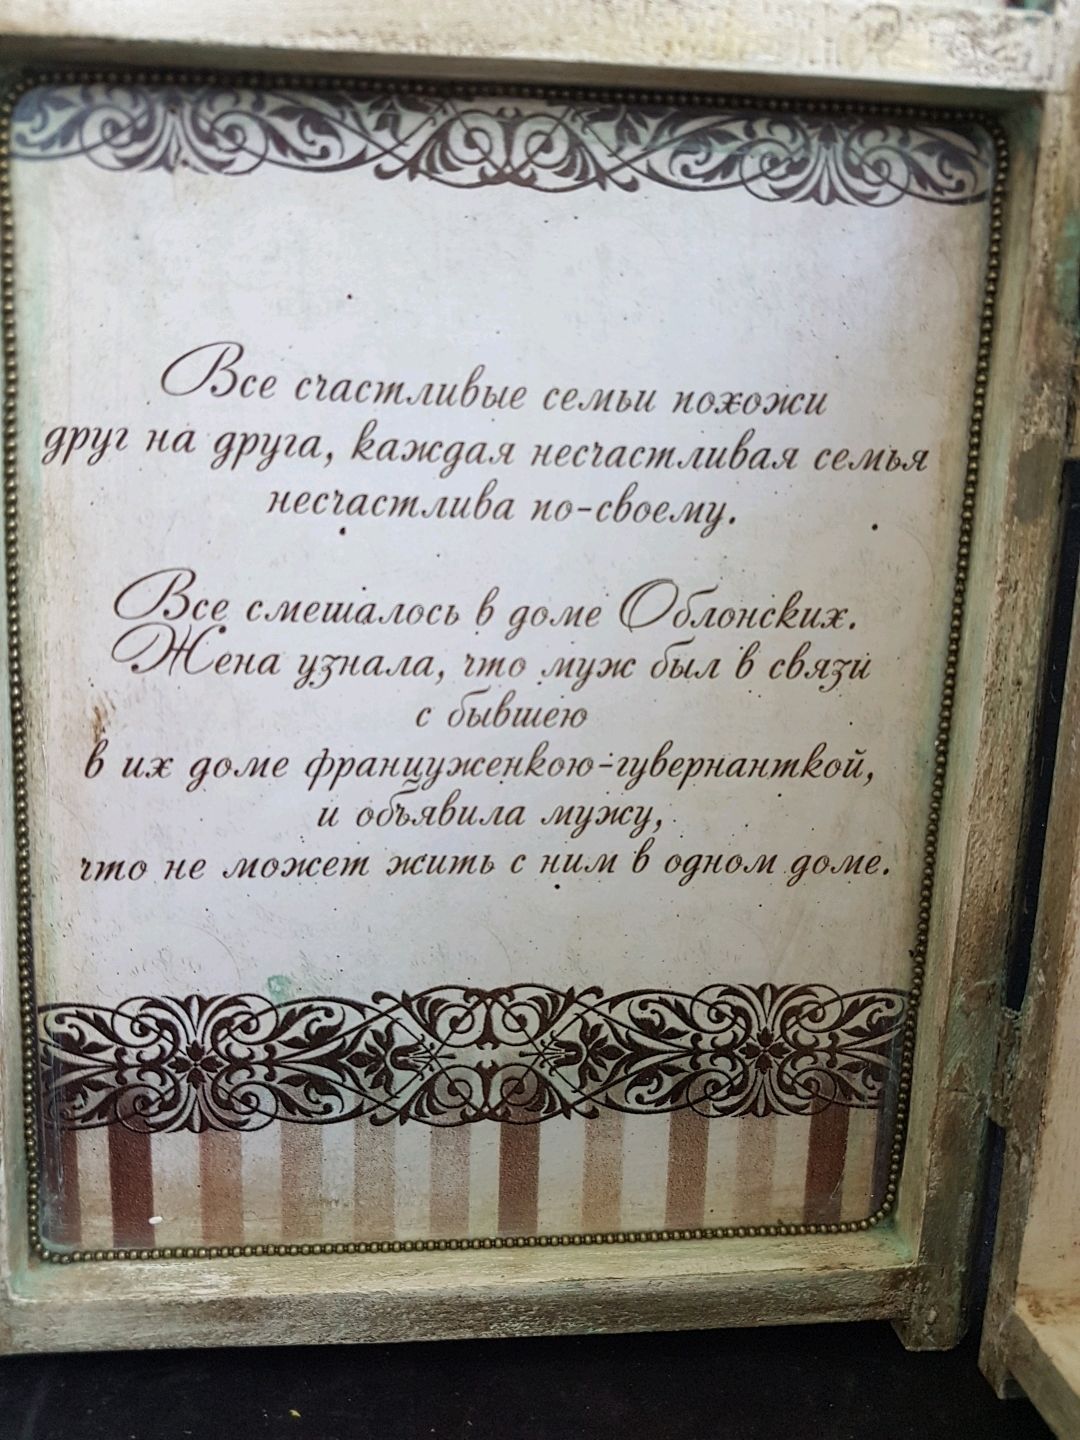 Все счастливые семьи похожи
друг на друга, каждая несчастливая семья
несчастлива по-своему.
Все смешалось в доме Облонских.
Жена узнала, что муж был в связи
с бывшею
в их доме француженкою-гувернанткой,
и объявила мужу,
что не может жить с ним в одном доме.